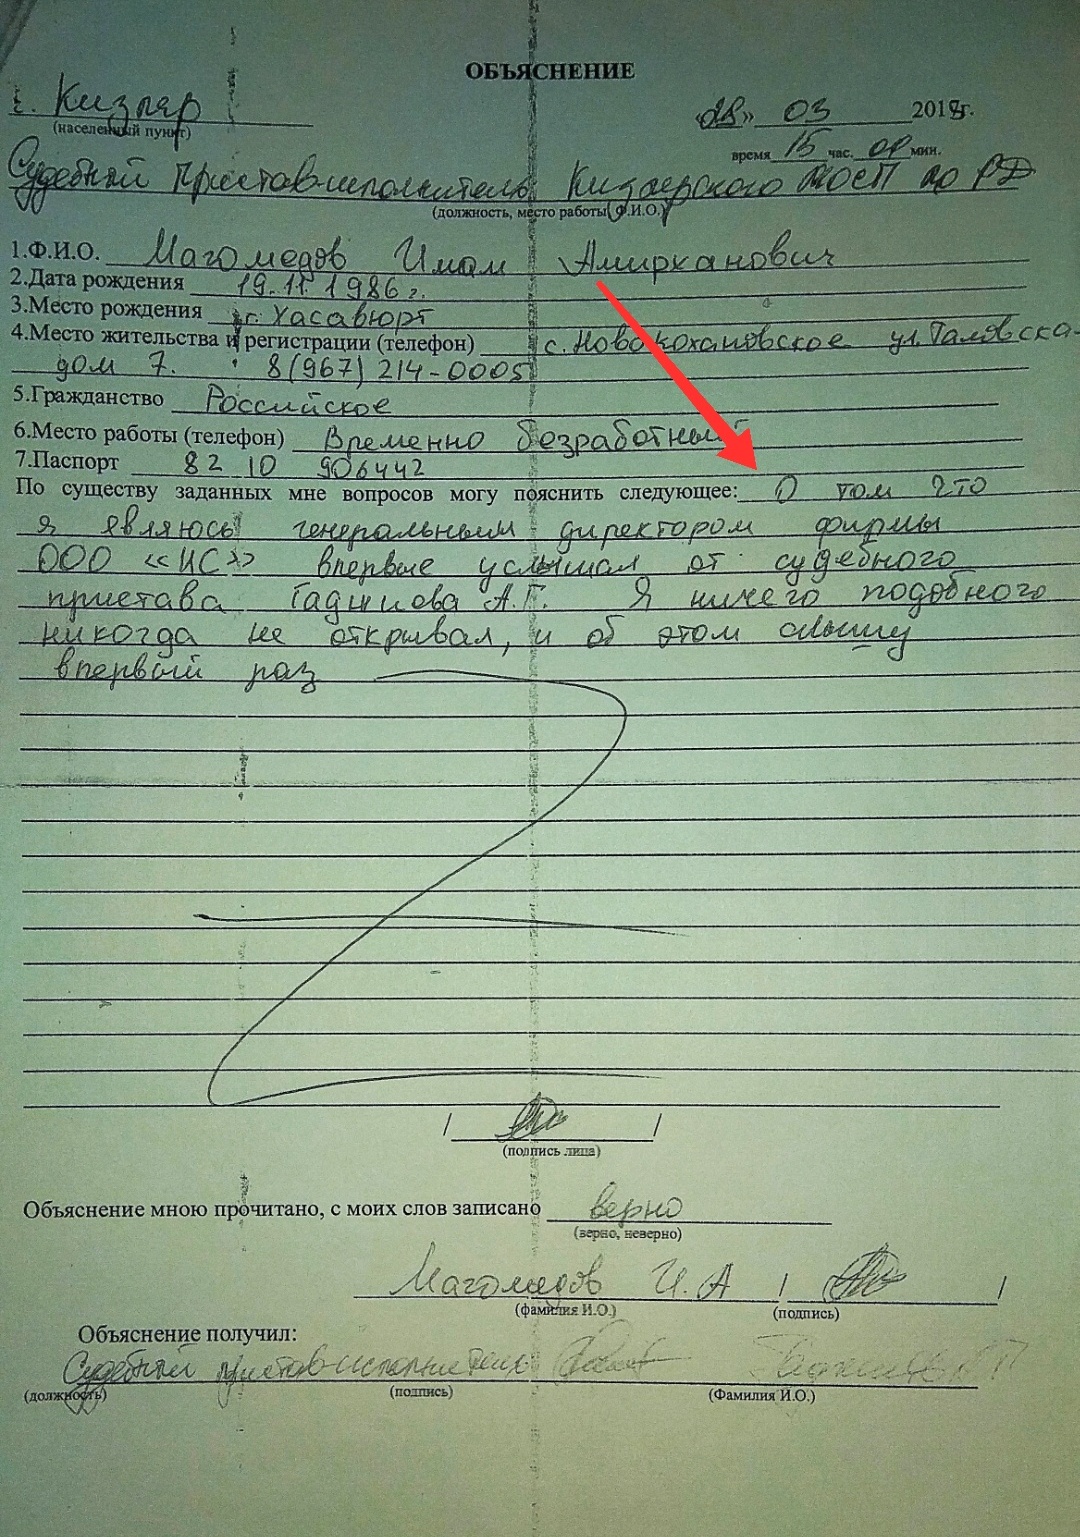 ОБЪЯСНЕНИЕ
г. Кизляр
(населенный пункт)
«28» 03 2018г.
время 15 час. 00 мин.
Судебный пристав-исполнитель Кизлярского МОСП по РД
(должность, место работы, Ф.И.О.)
1.Ф.И.О. Магомедов Имам Амирханович
2.Дата рождения 19.11.1986г.
3.Место рождения г. Хасавюрт
4.Место жительства и регистрации (телефон) с. Новокохановское ул. Таловска-
дом 7. 8(967) 214-0005
5.Гражданство Российское
6.Место работы (телефон) Временно безработный
7.Паспорт 82 10 906442
По существу заданных мне вопросов могу пояснить следующее: О том что
я являюсь генеральным директором фирмы
ООО «ИС» впервые услышал от судебного
пристава Гаджиева А.Г. Я ничего подобного
никогда не открывал, и об этом слышу
впервый раз
(подпись лица)
Объяснение мною прочитано, с моих слов записано верно
(верно, неверно)
Магомедов И.А
(фамилия И.О.) (подпись)
Объяснение получил:
Судебный пристав-исполнитель
(должность) (подпись) (Фамилия И.О.)